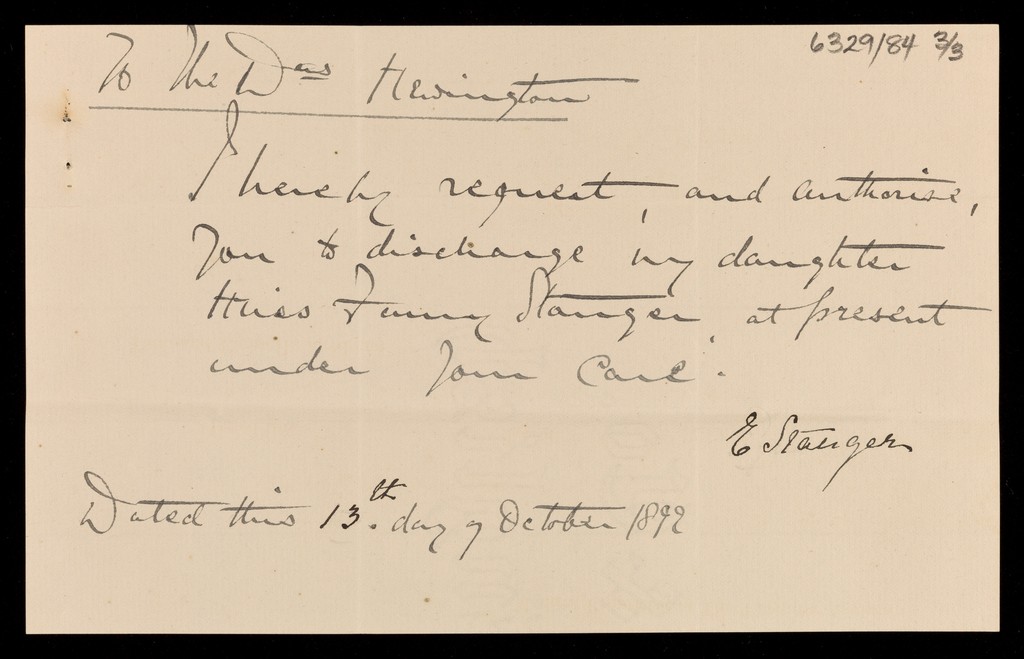 6329/84 3/3
To The Drs Newington
I hereby request, and authorise,
you to discharge my daughter
Miss Fanny Stanger, at present
under your care.
E Stanger
Dated this 13th. day of October 1892